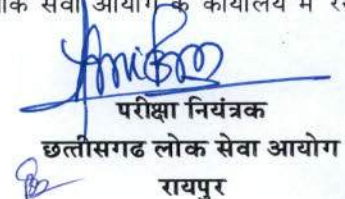 लोक सेवा आयोग के कार्यालय में
परीक्षा नियंत्रक
छत्तीसगढ लोक सेवा आयोग
रायपुर